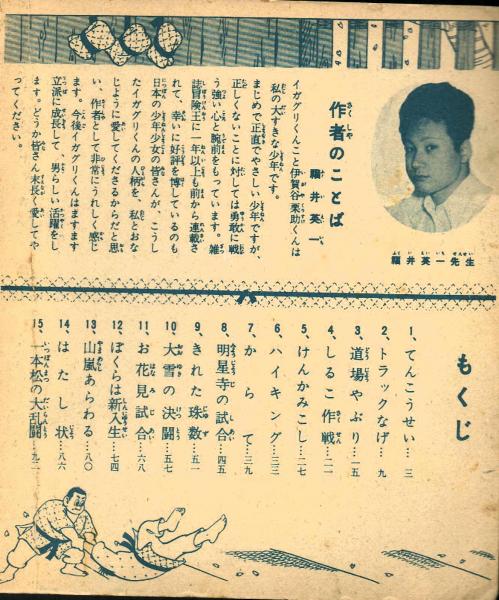 作者のことば
福井英一
イガグリくんこと伊賀谷栗助くんは
私の大すきな少年です。
まじめで正直でやさしい少年ですが、
正しくないことに対しては勇敢に戦
う強い心と腕前をもっています。雑
誌冒険王に一年以上も前から連載さ
れて、幸いに好評を博しているのも
日本の少年少女の皆さんが、こうし
たイガグリくんの人柄を、私とおな
じように愛してくださるからだと思
い、作者として非常にうれしく感じ
ます。今後イガグリくんはますます
立派に成長して、男らしい活躍をし
ます。どうか皆さん末長く愛してや
ってください。
福井英一先生
もくじ
1、てんこうせい…三
2、トラックなげ…九
3、道場やぶり…一五
4、しるこ作戦…二一
5、けんかみこし…二七
6、ハイキング…三三
7、からて…三九
8、明星寺の試合…四五
9、きれた珠数…五一
10、大雪の決闘…五七
11、お花見試合…六八
12、ぼくらは新入生…七四
13、山嵐あらわる…八〇
14、はたし状…八六
15、一本松の大乱闘…九二